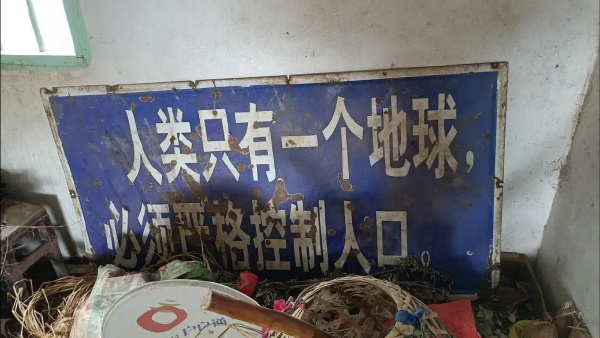 人类只有一个地球，
必须严格控制人口。